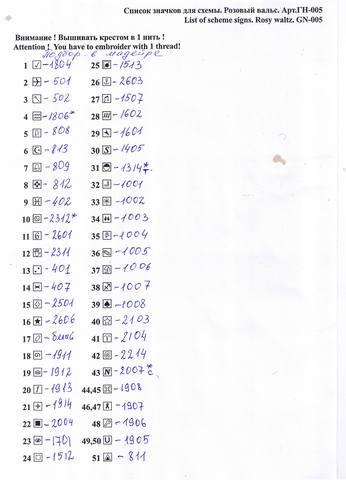 Список значков для схемы. Розовый вальс. Арт.ГН-005
List of scheme signs. Rosy waltz. GN-005
Внимание ! Вышивать крестом в 1 нить !
Attention ! You have to embroider with 1 thread!
подбор в мадейре
1 -1804
2 -501
3 -502
4 -1806*
5 -808
6 -813
7 -809
8 -812
9 -402
10 -2312*
11 -2601
12 -2311
13 -401
14 -407
15 -2501
16 -2606
17 -
18 -1911
19 -1912
20 -1913
21 -1914
22 -2004
23 -1701
24 -1512
25 -1513
26 -2603
27 -1507
28 -1602
29 -1601
30 -1405
31 -1314*т.
32 -1001
33 -1002
34 -1003
35 -1004
36 -1005
37 -1006
38 -1007
39 -1008
40 -2103
41 -2104
42 -2214
43 N -2007*с
44,45 -1908
46,47 -1907
48 -1906
49,50 U -1905
51 -811